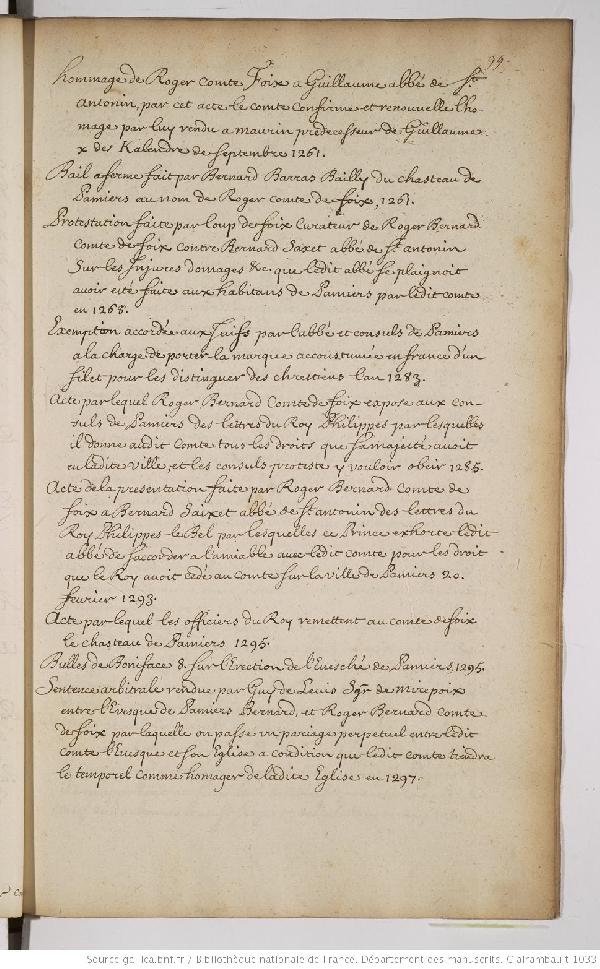 99.
hommage de Roger comte Foix a Guillaume abbé de St
antonin, par cet acte le comte confirme et renouvelle lho-
mage par luy rendu a maurin predecesseur de Guillaume
x des Kalendre de septembre 1261.
Bail a ferme fait par Bernard Barras Bailly du chasteau de
Pamiers au nom de Roger comte de foix, 1261.
Protestation faite par loup de foix Curateur de Roger Bernard
comte de foix contre Bernard Saxet abbé de St antonin
sur les Injures domages &c que ledit abbé se plaignoit
avoir esté faite aux habitans de Pamiers par ledit comte
en 1268.
Exemption accordée aux Juifs par l'abbé et consuls de Pamiers
a la charge de porter la marque accoustumée en france d'un
filet pour les distinguer des chrestiens l'an 1283.
Acte par lequel Roger Bernard Comte de foix expose aux con-
suls de Pamiers des lettres du Roy Philippes par lesquelles
il donne audit comte tous les droits que sa majesté avoit
en ladite ville, et les consuls proteste y vouloir obeir 1285.
Acte de la presentation faite par Roger Bernard comte de
foix a Bernard Saixet abbé de St antonin des lettres du
Roy Philippes le Bel par lesquelles ce Prince exhorte ledit
abbé de s'accorder a l'amiable avec ledit comte pour les droit
que le Roy avoit cedé au comte sur la ville de Pamiers 20.
fevrier 1293.
Acte par lequel les officiers du Roy remettent au comte de foix
le chasteau de Pamiers 1295.
Bulles de Boniface 8. sur l'Erection de l'Evesché de Pamiers, 1295.
Sentence arbitrale rendue par Guy de Levis Sgr de mirepoix
entre l'Evesque de Pamiers Bernard, et Roger Bernard comte
de foix par laquelle on passe un pariage perpetuel entre ledit
comte l'Evesque et son Eglise a condition que ledit comte tiendra
le temporel comme homager de ladite Eglise en 1297.
Source gallica.bnf.fr / Bibliothèque nationale de France. Département des manuscrits. Clairambault 1033